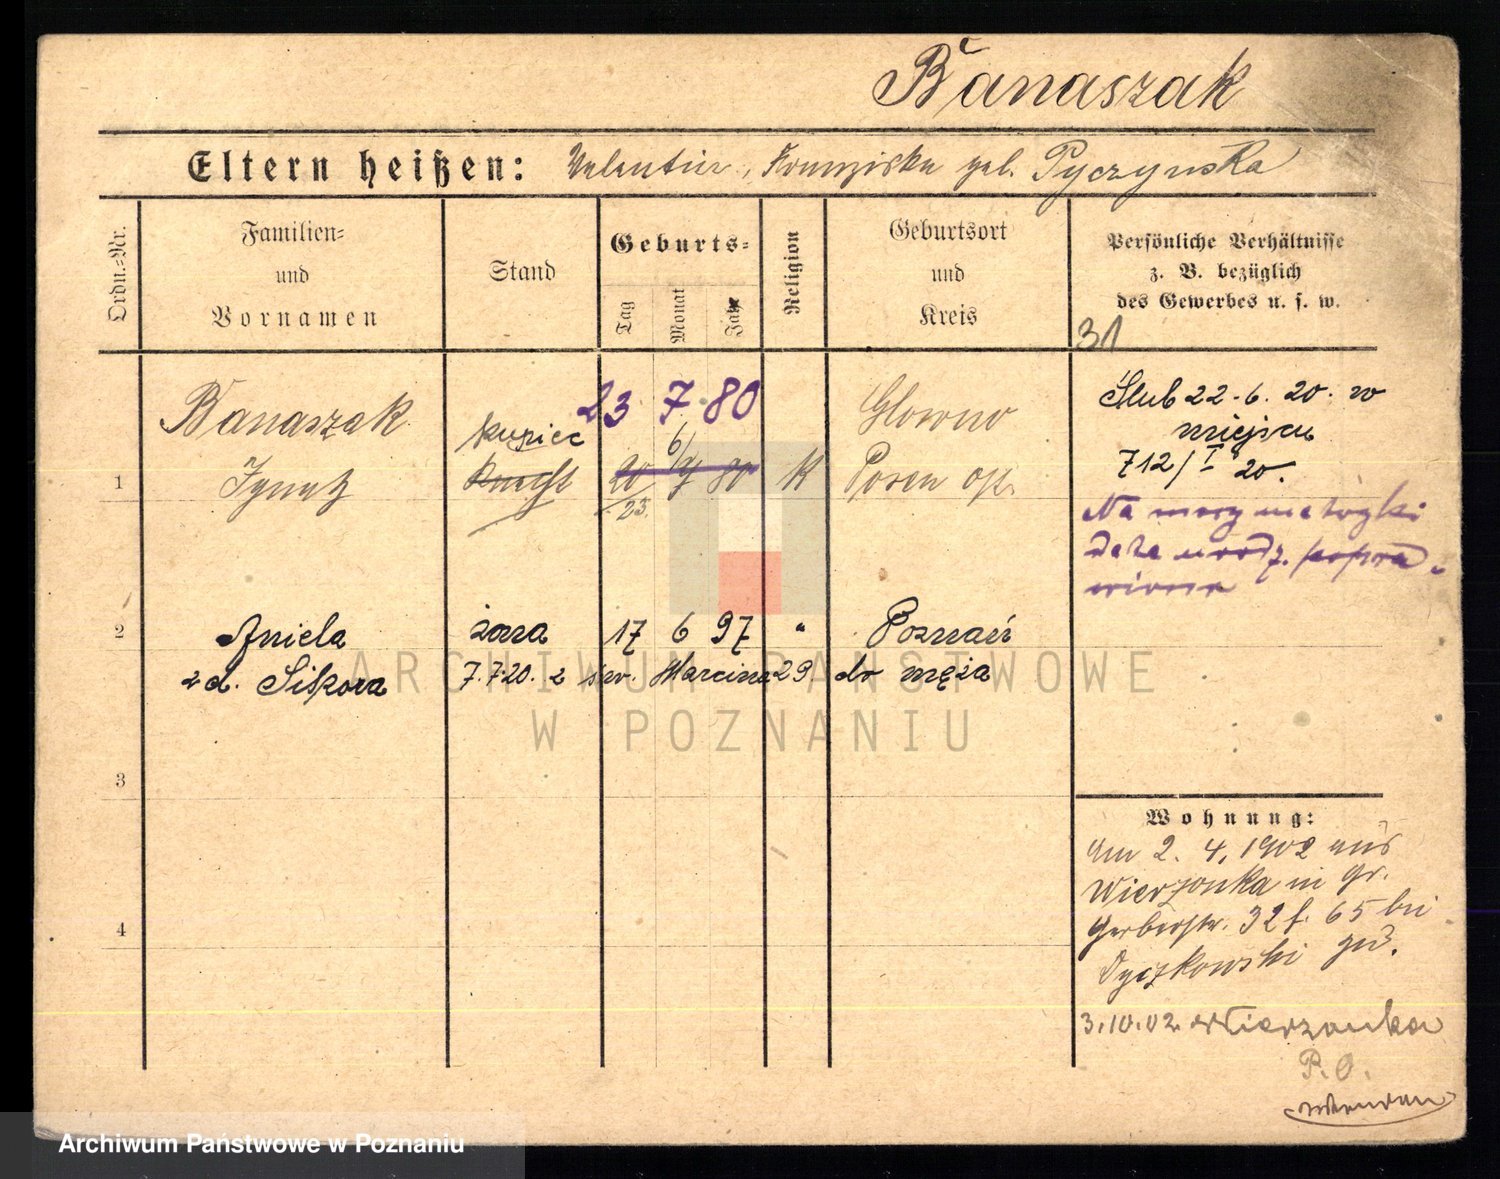 Banaszak
Eltern heißen: Valentin, Franziska geb. Pyczynska
Ordn.-Nr.
Familien-
und
Vornamen
Stand
Geburts-
Tag
Monat
Jahr
Religion
Geburtsort
und
Kreis
Persönliche Verhältnisse
z. B. bezüglich
des Gewerbes u. s. w.
31
1
Banaszak
Ignatz
kupiec
Knecht
23 7 80
20 6/7 80
23.
K
Glowno
Posen
Ślub 22.6.20. w
miejscu
712/I 20.
Na mocy metryki
data urodz. popra-
wiona
2
Aniela
z d. Sikora
żona
17 6 97
"
Poznań
7.7.20. z św. Marcina 29. do męża
3
4
Wohnung:
am 2. 4. 1902 aus
Wierzonka in Gr.
Gerberstr. 32 f. 65 bei
Dyczkowski
3.10.02. Wierzonka
P. O.
ARCHIWUM PAŃSTWOWE
W POZNANIU
Archiwum Państwowe w Poznaniu